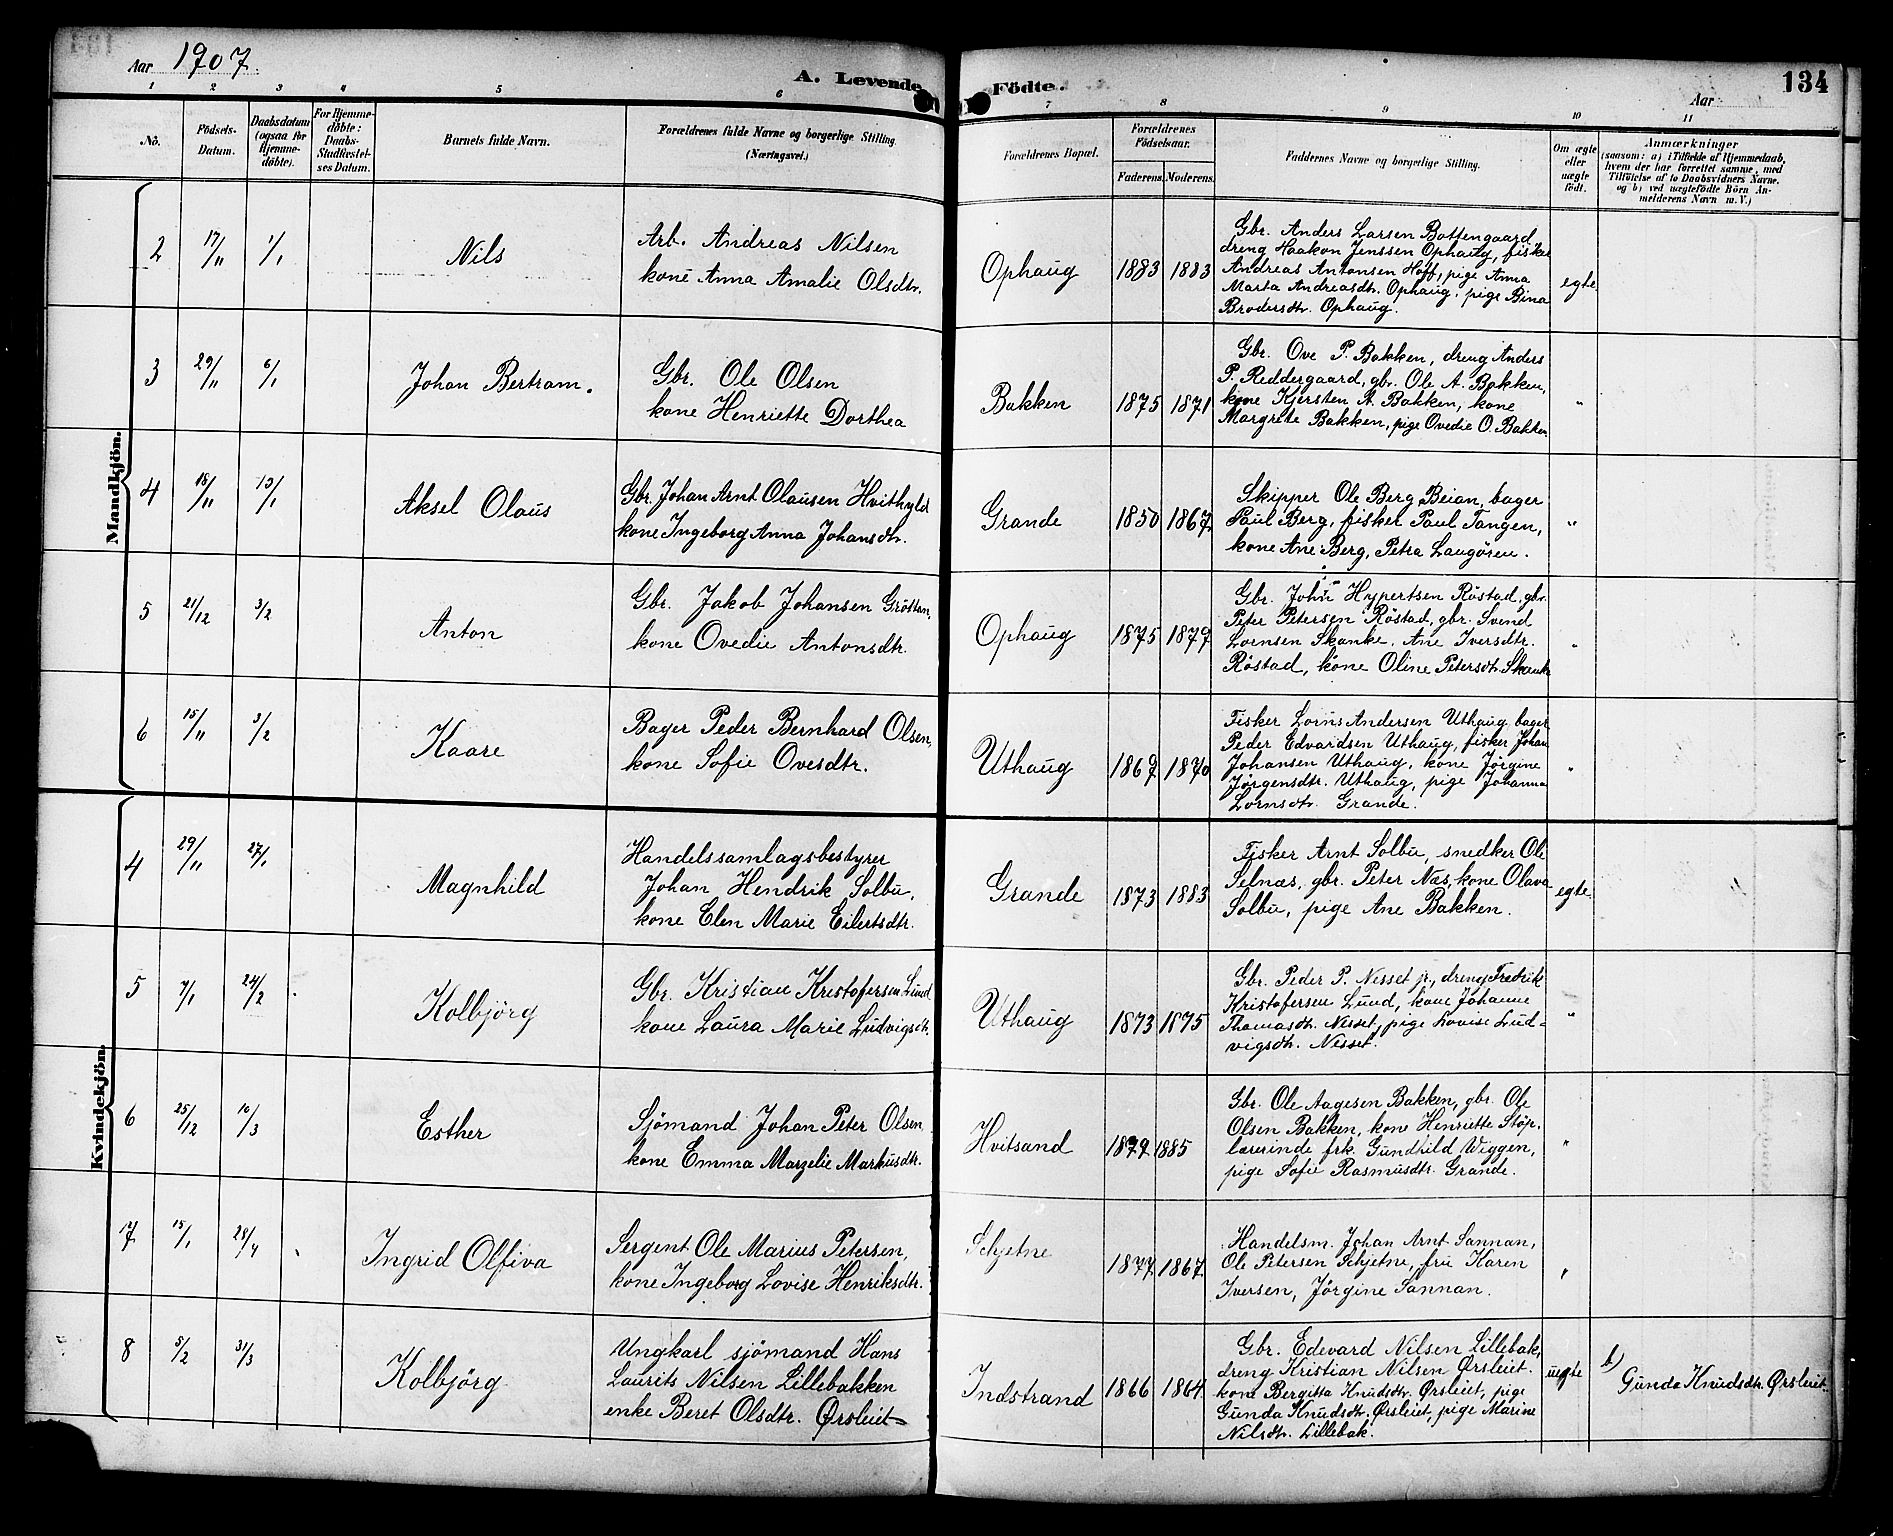 Aar 1907.
A. Levende Födte.
134
Aar
1 2 3 4 5 6 7 8 9 10 11
No.
Födsels-Datum.
Daabsdatum (ogsaa for Hjemme-döbte).
For Hjemme-döbte: Daabs-Stadfæstel-ses Datum.
Barnets fulde Navn.
Forældrenes fulde Navne og borgerlige Stilling. (Næringsvei.)
Forældrenes Bopæl.
Forældrenes Födselsaar.
Faderens. Moderens.
Faddernes Navne og borgerlige Stilling.
Om ægte eller uægte födt.
Anmærkninger
(saasom: a) i Tilfælde af Hjemmedaab,
hvem der har forrettet samme, med
Tilföielse af to Daabsvidners Navne.
og b) ved uægtefödte Börn An-
melderens Navn m. V.)
Mandkjön.
2 17/11 1/1 Nils
Arb. Andreas Nilsen
kone Anna Amalie Olsdtr.
Ophaug 1883 1883
Gbr. Anders Larsen Bottengaard,
dreng Haakon Jenssen Ophaug, fisker
Andreas Antonsen Hoff, pige Anna
Marta Andreasdtr. Ophaug, pige Bina
Brodersdtr. Ophaug.
egte
3 29/11 6/1 Johan Bertram.
Gbr. Ole Olsen
kone Henriette Dorthea
Bakken 1875 1871
Gbr. Ove P. Bakken, dreng Anders
P. Reddergaard, gbr. Ole A. Bakken,
kone Kjersten A. Bakken, kone
Margrete Bakken, pige Ovedie O. Bakken
"
4 18/11 13/1 Aksel Olaus
Gbr. Johan Arnt Olausen Hvithyld
kone Ingeborg Anna Johansdtr.
Grande 1850 1867.
Skipper Ole Berg Beian, bager
Paul Berg, fisker Paul Tangen,
kone Ane Berg, Petra Laugören.
"
5 21/12 3/2 Anton
Gbr. Jakob Johansen Gröttan,
kone Ovedie Antonsdtr.
Ophaug 1875 1879
Gbr. John Hypertsen Röstad, gbr.
Peter Petersen Röstad, gbr. Svend
Lornsen Skanke, Ane Iversdtr.
Röstad, kone Oline Petersdtr. Skanke
"
6 15/11 3/2 Kaare
Bager Peder Bernhard Olsen,
kone Sofie Ovesdtr.
Uthaug 1867 1870
Fisker Lorns Andersen Uthaug, bager
Peder Edvardsen Uthaug, fisker Johan
Johansen Uthaug, kone Jörgine
Jörgensdtr. Uthaug, pige Johanna
Lornsdtr. Grande.
"
Kvindekjön.
4 29/11 27/1 Magnhild
Handelssamlagsbestyrer
Johan Hendrik Solbu,
kone Elen Marie Eilertsdtr.
Grande 1873 1883
Fisker Arnt Solbu, snedker Ole
Selnæs, gbr. Peter Næs, kone Olava
Solbu, pige Ane Bakken.
egte
5 7/1 24/2 Kolbjörg
Gbr. Kristian Kristofersen Lund
kone Laura Marie Ludvigsdtr.
Uthaug 1873 1875
Gbr. Peder P. Nesset jr., dreng Fredrik
Kristofersen Lund, kone Johanne
Thomasdtr. Nesset, pige Lovise Lud-
vigsdtr. Nesset.
"
6 25/12 10/3 Esther
Sjömand Johan Peter Olsen,
kone Emma Marzelie Markusdtr.
Hvitsand 1879 1885
Gbr. Ole Aagesen Bakken, gbr. Ole
Olsen Bakken, kone Henriette Stöp.
lærerinde frk. Gundhild Wiggen,
pige Sofie Rasmusdtr. Grande.
"
7 15/1 28/4 Ingrid Olfiva
Sergent Ole Marius Petersen,
kone Ingeborg Lovise Henriksdtr.
Schjetne 1877 1867.
Handelsm. Johan Arnt Sannan,
Ole Petersen Schjetne, fru Karen
Iversen, Jörgine Sannan.
"
8 5/2 31/3 Kolbjörg
Ungkarl sjömand Hans
Laurits Nilsen Lillebakken
enke Beret Olsdtr. Ørsleiet
Indstrand 1866 1864
Gbr. Edevard Nilsen Lillebak,
dreng Kristian Nilsen Ørsleiet.
kone Bergitta Knudsdtr. Ørsleiet, pige
Gunda Knudsdtr. Ørsleiet, pige Marine
Nilsdtr. Lillebak.
uegte
b) Gunda Knudsdtr. Ørsleiet.